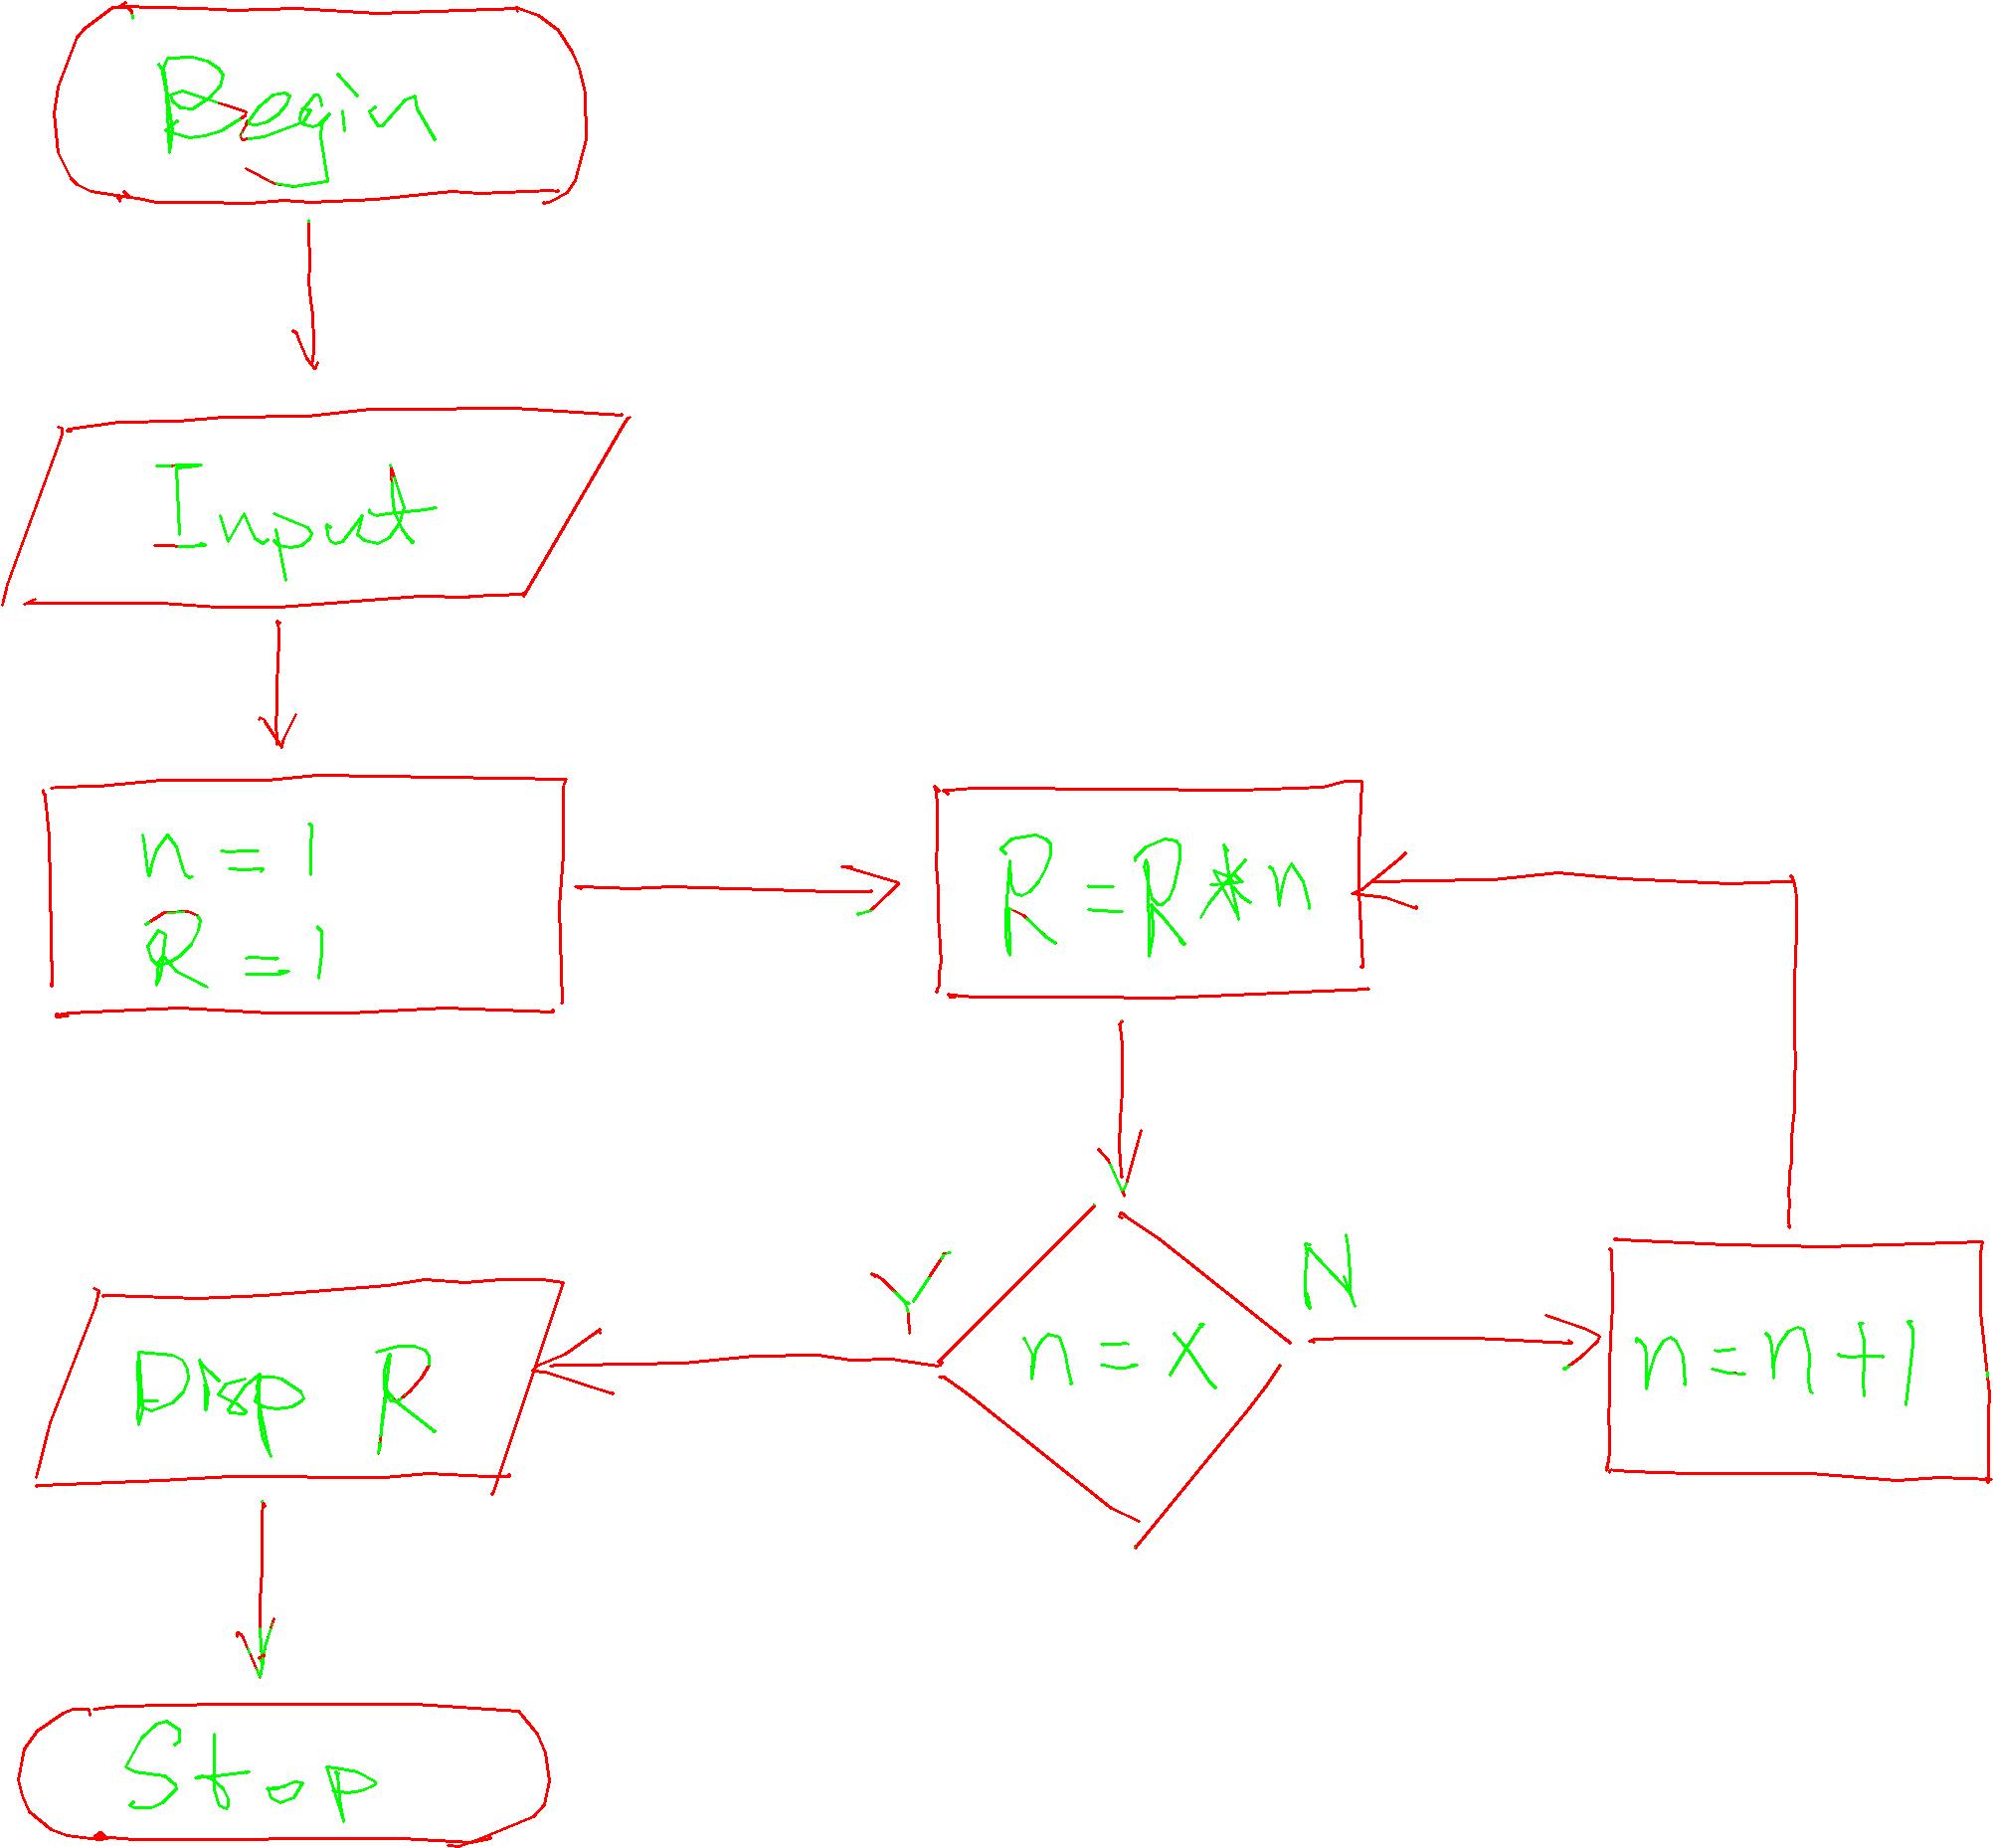 Begin
Input
n = 1
R = 1
R = R * n
n = x
Y
N
n = n + 1
Disp R
Stop